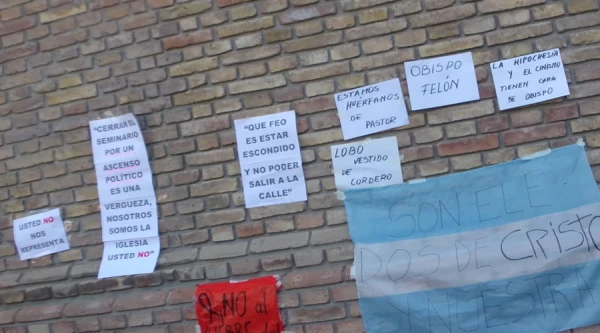 USTED NO
NOS
REPRESENTA
"CERRAR EL
SEMINARIO
POR UN
ASCENSO
POLÍTICO
ES UNA
VERGUEZA,
NOSOTROS
SOMOS LA
IGLESIA
USTED NO"
"QUE FEO
ES ESTAR
ESCONDIDO
Y NO PODER
SALIR A LA
CALLE"
ESTAMOS
HUERFANOS
DE
PASTOR
OBISPO
FELÓN
LA HIPOCRESIA
Y EL CINISMO
TIENEN CARA
DE OBISPO
LOBO
VESTIDO
DE
CORDERO
SON ELE
DOS DE CRISTO
Y NUESTRA
NO al